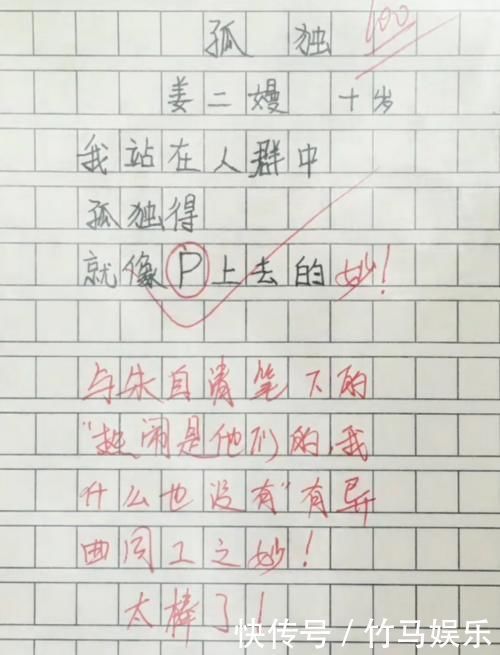 孤独 100
姜二嫚 十岁
我站在人群中
孤独得
就像P上去的 妙！
与朱自清笔下的
"热闹是他们的,我
什么也没有"有异
曲同工之妙！
太棒了！
快传号／竹马娱乐